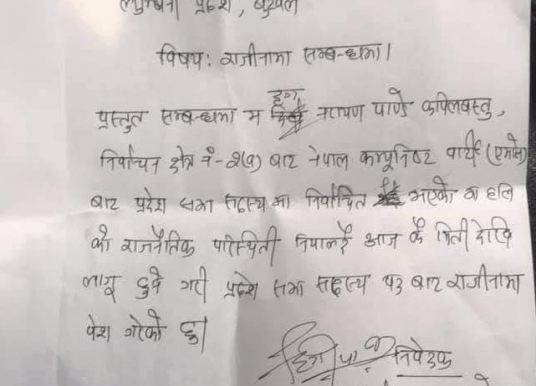 लुम्बिनी प्रदेश, बुटवल
विषय: राजीनामा सम्बन्धमा।
प्रस्तुत सम्बन्धमा म दृग नारायण पाण्डे कपिलवस्तु,
निर्वाचन क्षेत्र नं-२(क) बाट नेपाल कम्युनिष्ट पार्टी (एमाले)
बाट प्रदेश सभा सदस्य मा निर्वाचित भएको मा हाल
को राजनैतिक परिस्थिती नियाल्दै आज कै मिती देखि
लागू हुने गरी प्रदेश सभा सदस्य पद बाट राजीनामा
पेश गरेको छु।
निवेदक